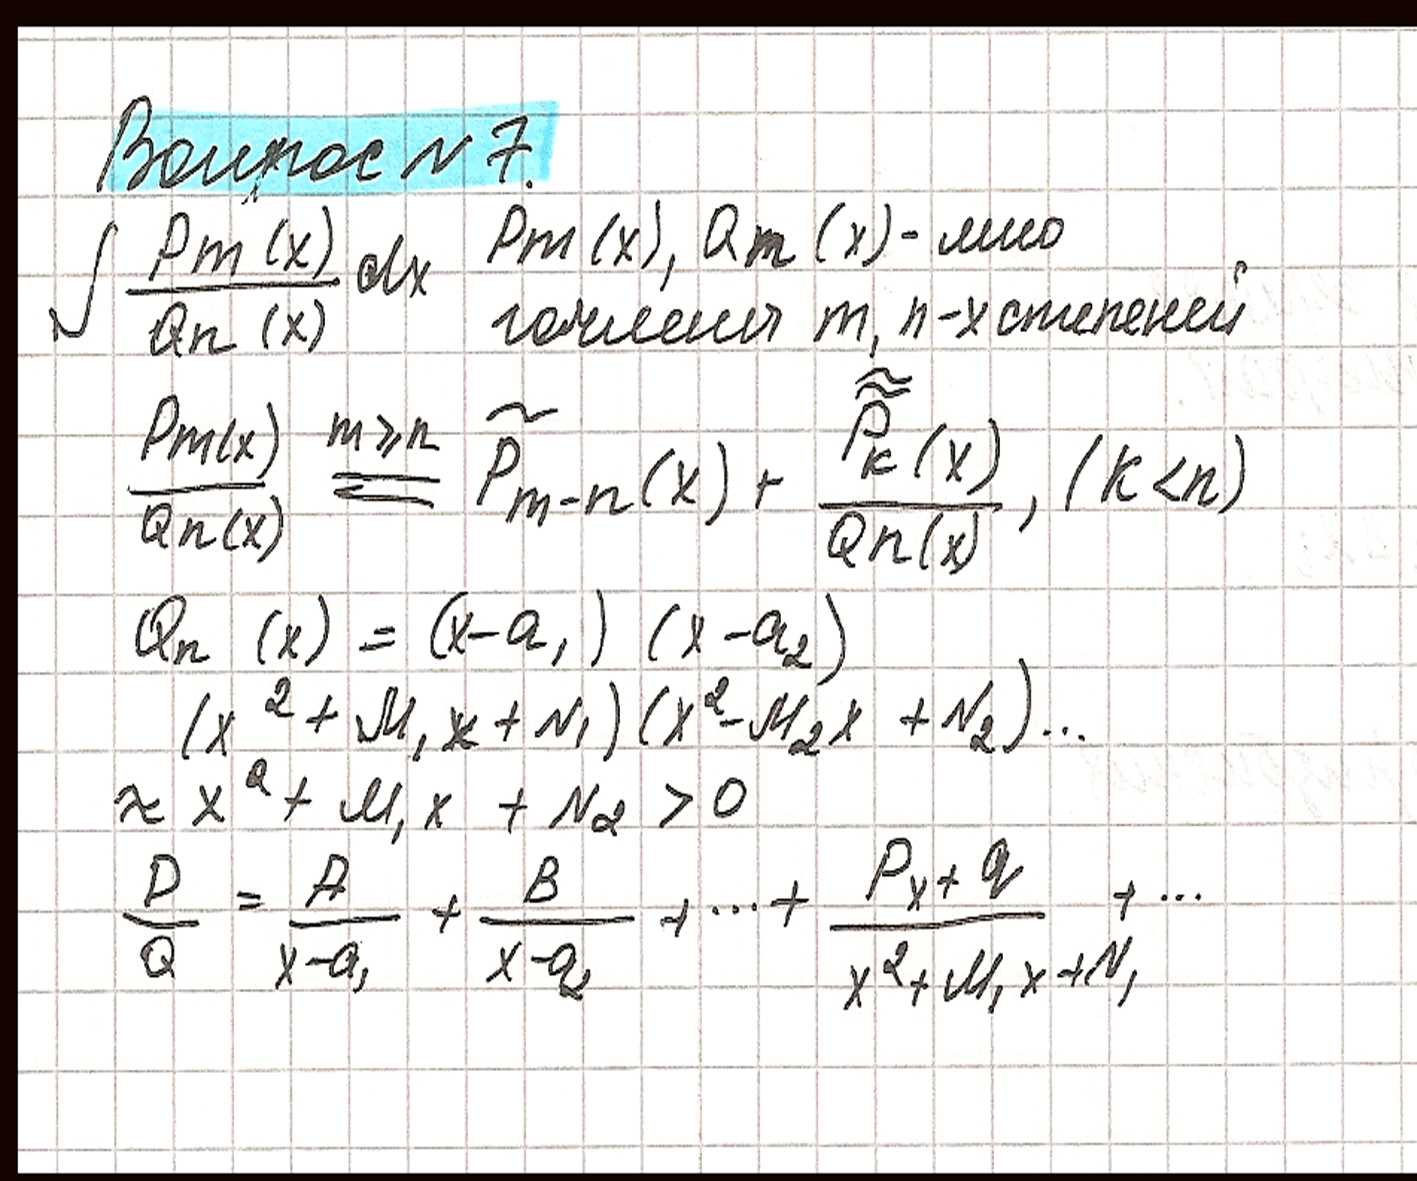 Вопрос № 7.
∫ Pm(x)/Qn(x) dx Pm(x), Qm(x) - мно
гочлены m, n-х степеней
Pm(x)/Qn(x) =(m⩾n)= P̃m-n(x) + P̃̃k(x)/Qn(x), (k<n)
Qn (x) = (x-a₁) (x-a₂)
(x² + M₁x + N₁)(x² - M₂x + N₂)...
≈ x² + M₁x + N₂ > 0
P/Q = A/(x-a₁) + B/(x-a₂) + ... + (Px+q)/(x² + M₁x + N₁) + ...